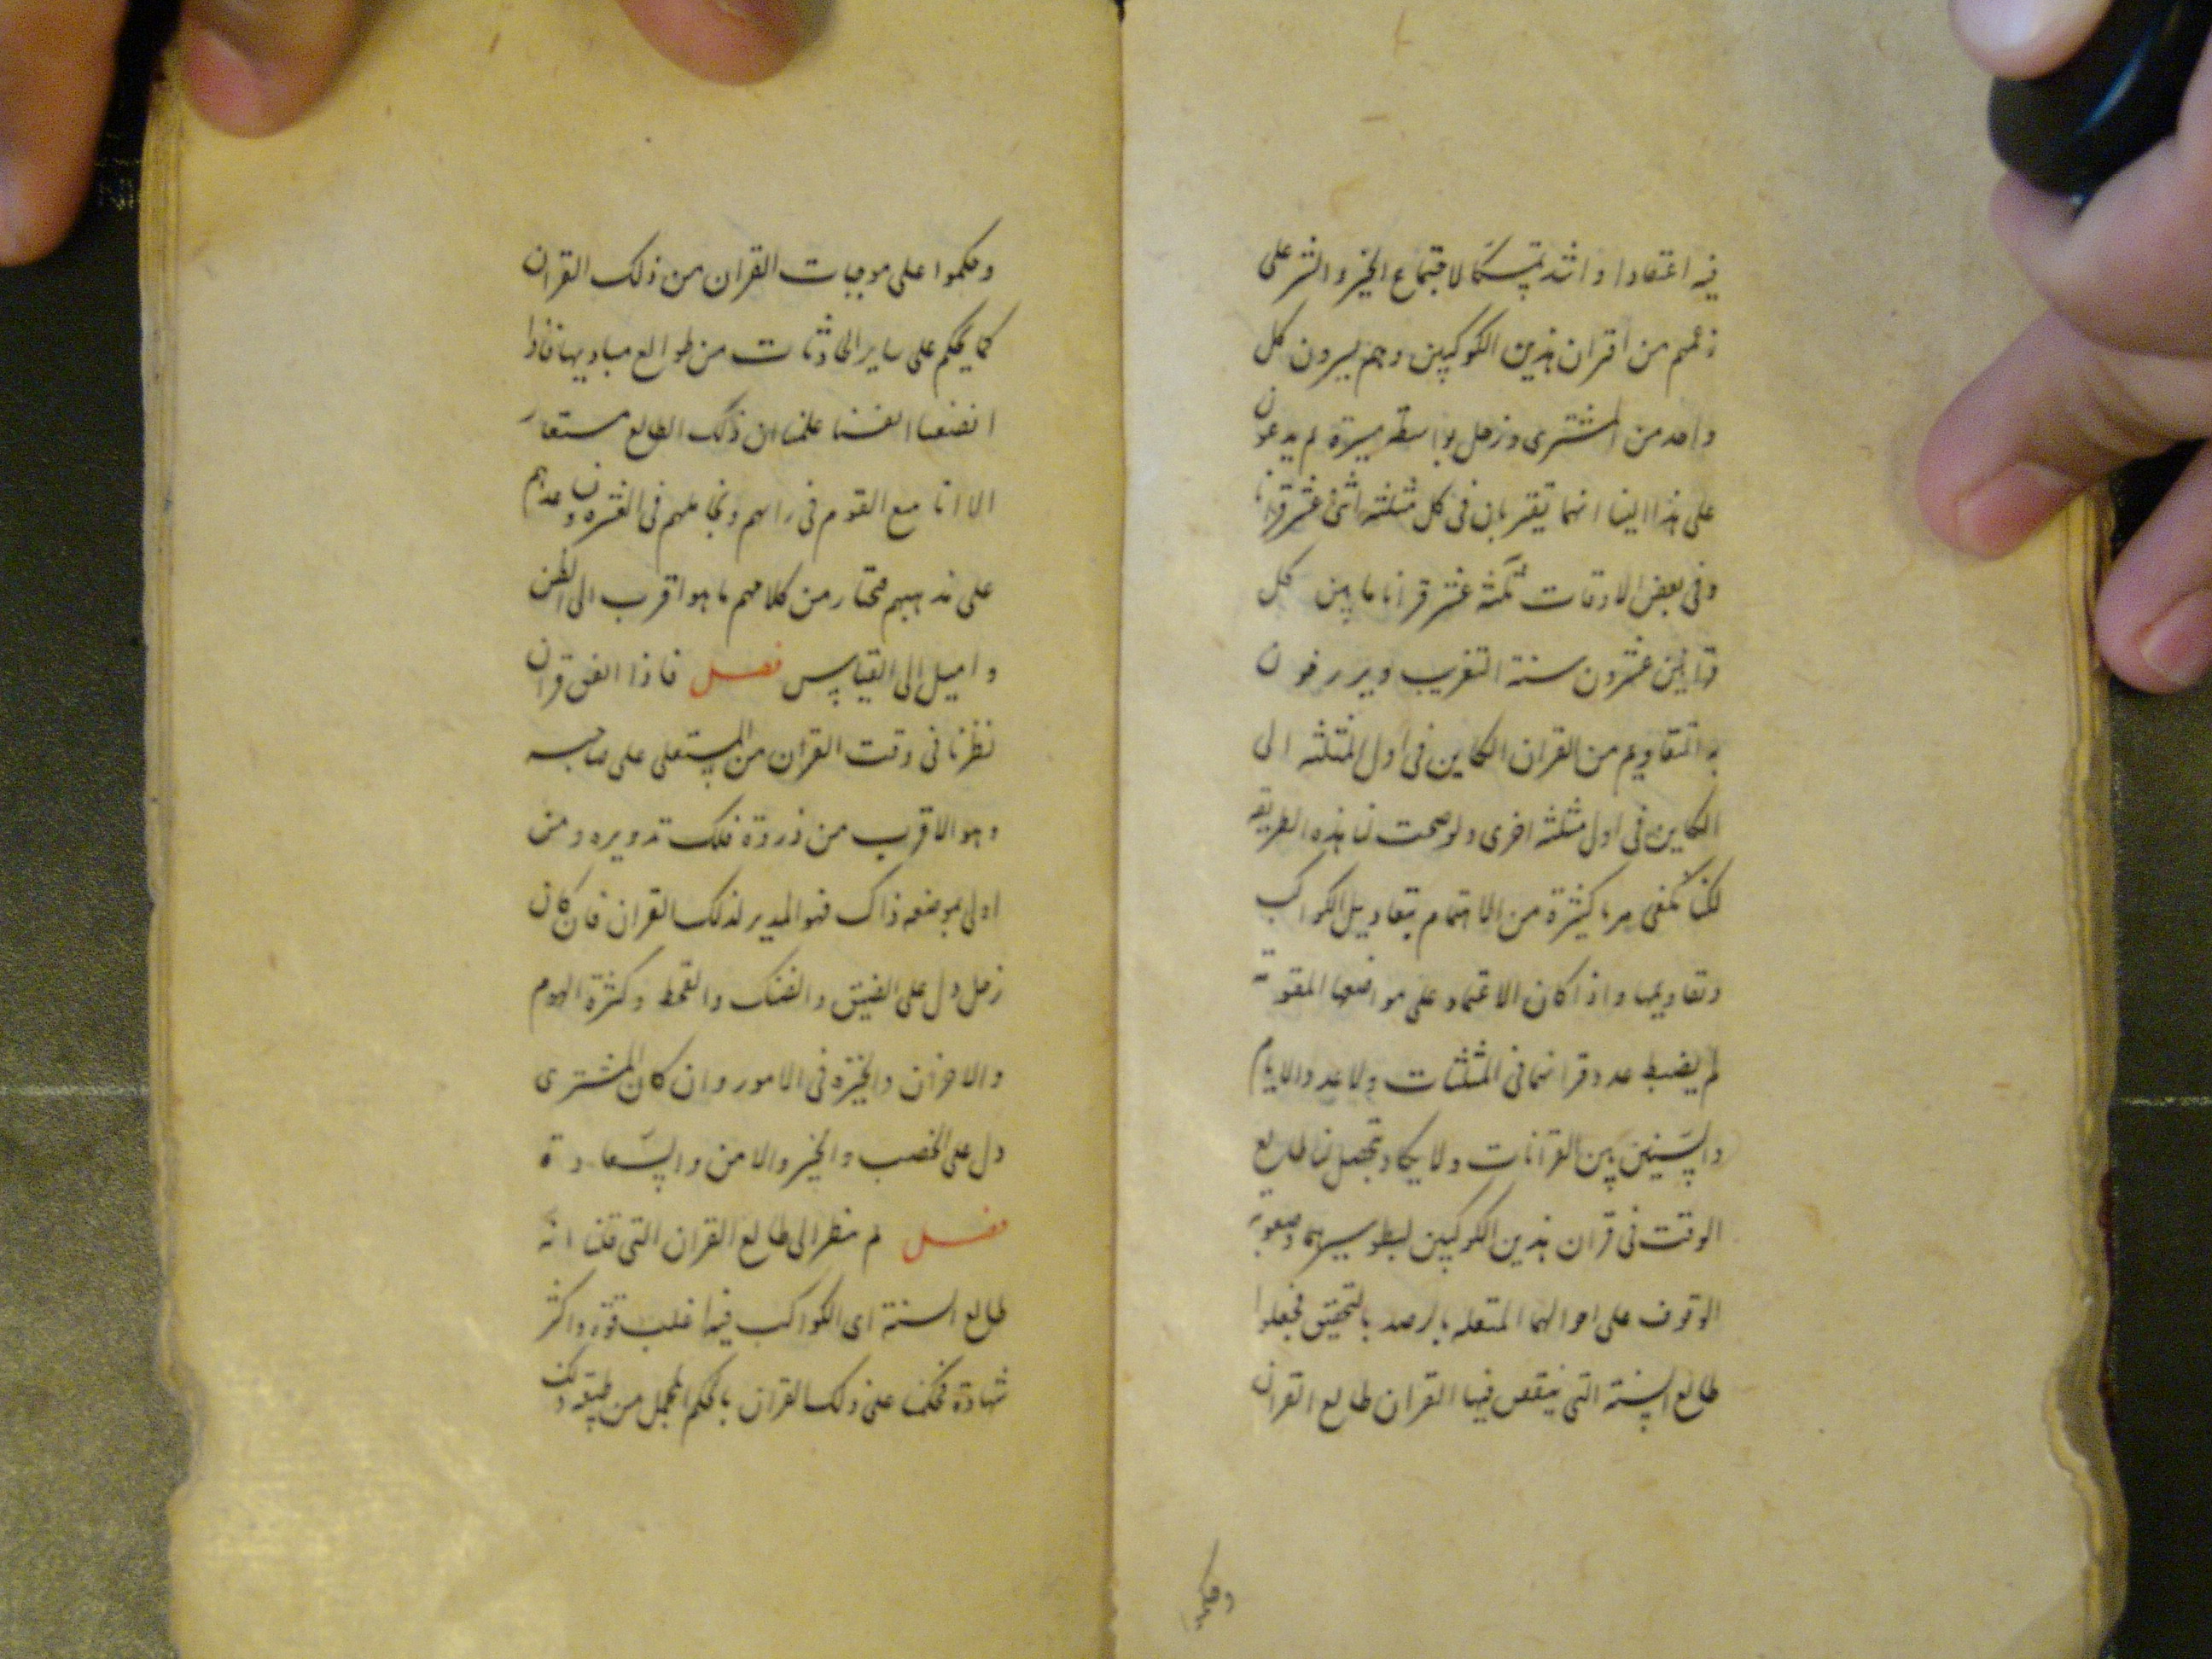 فيه اعتقادا واشد تمسكا لاجتماع الخير والشر على
زعمهم من اقتران هذين الكوكبين وهم يسيرون كل
واحد من المشترى وزحل بواسطة مسيره لم يدعون
على هذا البنا انهما يقتربان فى كل مثلثة اثنى عشر قرانا
وفى بعض الاوقات ثلثة عشر قرانا ما بين كل
قرانين عشرون سنة التقريب
به التقاويم من القران الكاين فى اول المثلثه الى
الكاين فى اول مثلثه اخرى ولو صحت لنا هذه الطريقه
كثيرة من الاهتمام بتعاديل الكواكب
وتقاويمها واذا كان الاعتماد على مواضعها المقومة
لم يضبط عدد قرانهما فى المثلثات ولا عدد الايام
والسنين بين القرانات ولا يكاد تحصل لنا طالع
الوقت فى قران هذين الكوكبين لبطو سيرهما وصعوبة
الوقوف على احوالهما المتعلقه بالرصد بالتحقيق فجعلوا
طالع السنة التى يتفق فيها القران طالع القران
وحكموا
وحكموا على موجبات القران من ذلك القران
كما يحكم على ساير الحادثات من طوالع مباديها فاذا
انصفنا انفسنا علمنا ان ذلك الطالع مستعار
الا انا مع القوم فى راسهم
على مذهبهم مختار من كلامهم ما هو اقرب الى الظن
واميل الى القياس فصل فاذا اتفق قران
نظرنا فى وقت القران من المستعلى على صاحبه
وهو الاقرب من ذروة فلك تدويره ومن
اولى بموضعه ذاك فهو المدير لذلك القران فان كان
زحل دل على الضيق والضنك والقحط وكثرة الهموم
والاحزان والحيرة فى الامور وان كان المشترى
دل على الخصب والخير والامن والسعادة
فصل ثم ننظر الى طالع القران التى قلنا انه
طالع السنة اى الكواكب فيه اغلب قوة واكثر
شهادة فحكمنا على ذلك القران بالحكم المجمل من طبيعة ذلك